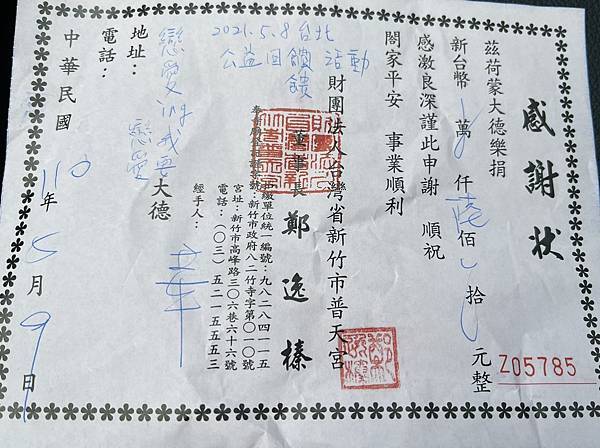 感謝狀
茲荷蒙大德樂捐
新台幣 萬 仟陸佰 拾 元整
感激良深謹此申謝 順祝
閤家平安 事業順利
財團法人台灣省新竹市普天宮
董事長 鄭逸榛
統一編號:九八二八四一一五
新竹市政府八二竹寺字第〇一〇號
宮址:新竹市高峰路三〇六巷六十六號
電話:(〇三)五二一五五五三
經手人:
大德
戀愛
地址:
電話:
中華民國 110 年 5 月 9 日
2021.5.8 台北
公益回饋 活動
Z05785